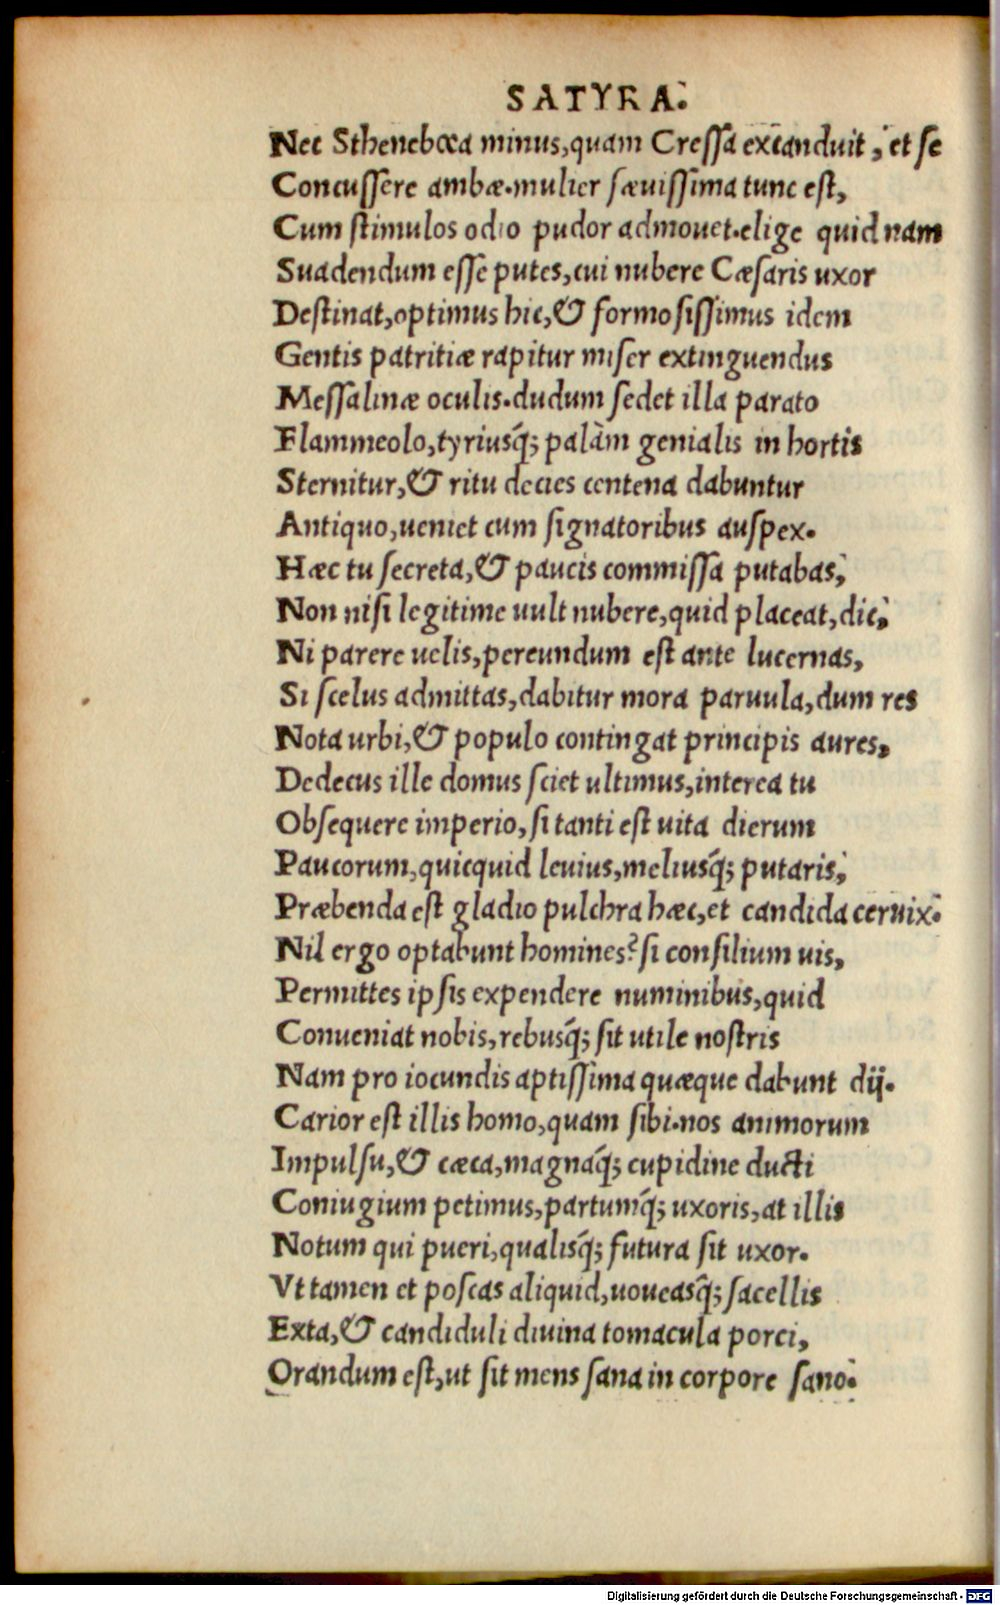 SATYRA.
Nec Sthenebœa minus,quam Cressa excanduit, et se
Concussere ambæ.mulier sæuissima tunc est,
Cum stimulos odio pudor admouet.elige quid nam
Suadendum esse putes,cui nubere Cæsaris uxor
Destinat,optimus hic,& formosissimus idem
Gentis patritiæ rapitur miser extinguendus
Messalinæ oculis.dudum sedet illa parato
Flammeolo,tyriusq́; palàm genialis in hortis
Sternitur,& ritu decies centena dabuntur
Antiquo,ueniet cum signatoribus auspex.
Hæc tu secreta,& paucis commissa putabas,
Non nisi legitime uult nubere,quid placeat,dic,
Ni parere uelis,pereundum est ante lucernas,
Si scelus admittas,dabitur mora paruula,dum res
Nota urbi,& populo contingat principis aures,
Dedecus ille domus sciet ultimus,interea tu
Obsequere imperio,si tanti est uita dierum
Paucorum,quicquid leuius,meliusq́; putaris,
Præbenda est gladio pulchra hæc,et candida ceruix.
Nil ergo optabunt homines?si consilium uis,
Permittes ipsis expendere numinibus,quid
Conueniat nobis,rebusq́; sit utile nostris
Nam pro iocundis aptissima quæque dabunt dij.
Carior est illis homo,quam sibi.nos animorum
Impulsu,& cæca,magnaq́; cupidine ducti
Coniugium petimus,partumq́; uxoris,at illis
Notum qui pueri,qualisq́; futura sit uxor.
Vt tamen et poscas aliquid,uoueasq́; sacellis
Exta,& candiduli diuina tomacula porci,
Orandum est,ut sit mens sana in corpore sano.
Digitalisierung gefördert durch die Deutsche Forschungsgemeinschaft - DFG